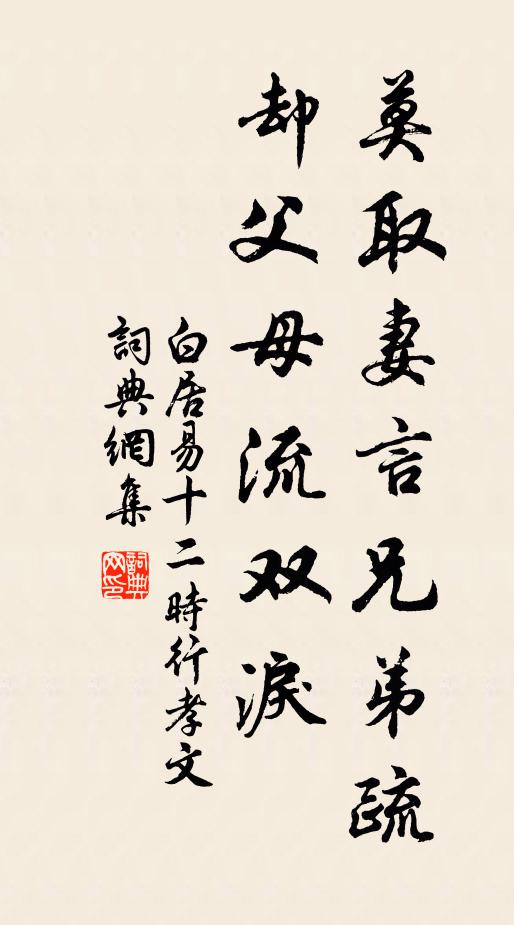 莫取妻言兄弟疏
却父母流双淚
白居易十二時行孝文
詞典網集
詞典網印